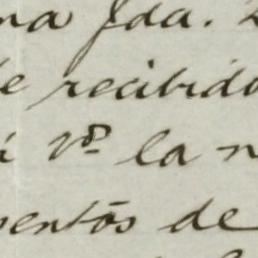 na fda.
de recibido
Vº la n
mentos de